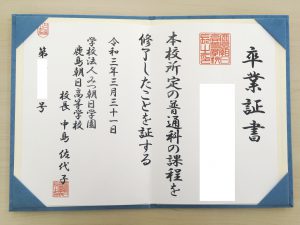 卒業証書
本校所定の普通科の課程を
修了したことを証する
令和三年三月三十一日
学校法人みつ朝日学園
鹿島朝日高等学校
校長 中島 佐代子
第 号